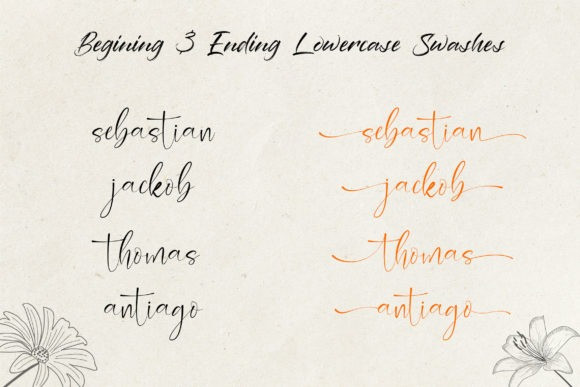 Begining & Ending Lowercase Swashes
sebastian sebastian
jackob jackob
thomas thomas
antiago antiago